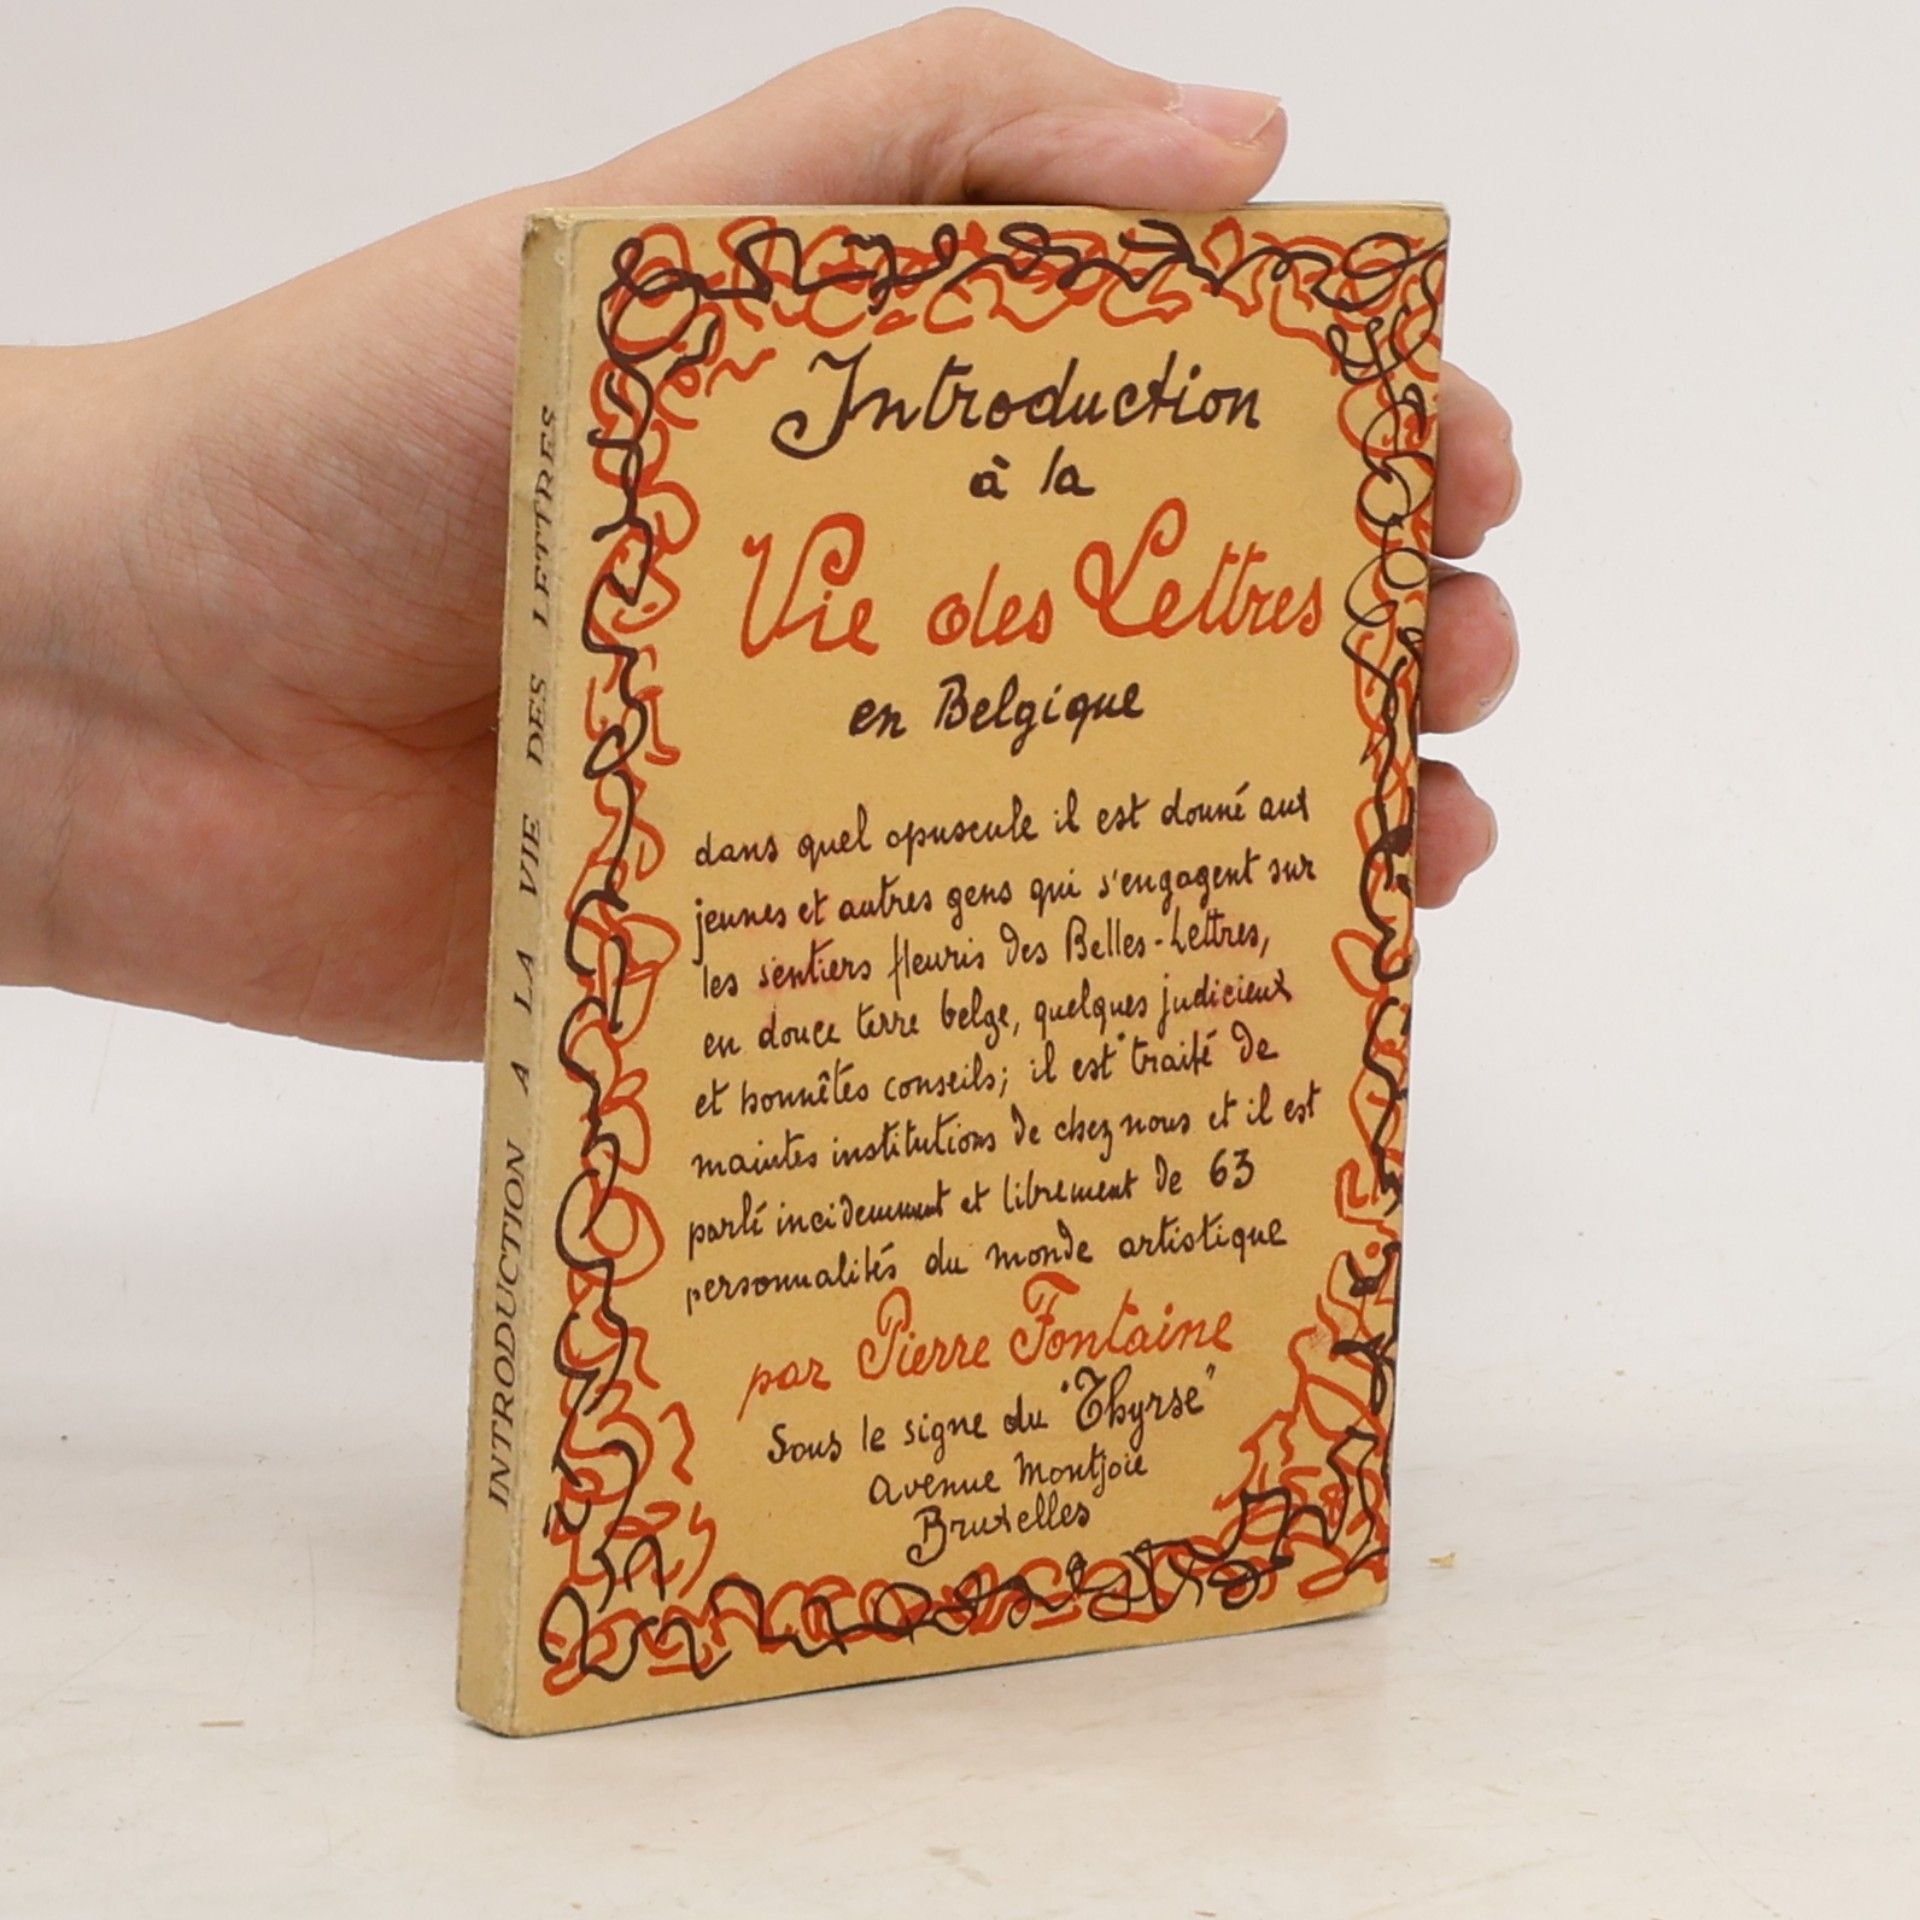 INTRODUCTION A LA VIE DES LETTRES
Introduction
à la
Vie des Lettres
en Belgique
dans quel opuscule il est donné aux
jeunes et autres gens qui s'engagent sur
les sentiers fleuris des Belles-Lettres,
en douce terre belge, quelques judicieux
et honnêtes conseils; il est traité de
maintes institutions de chez nous et il est
parlé incidemment et librement de 63
personnalités du monde artistique
par Pierre Fontaine
Sous le signe du "Thyrse"
Avenue Montjoie
Bruxelles